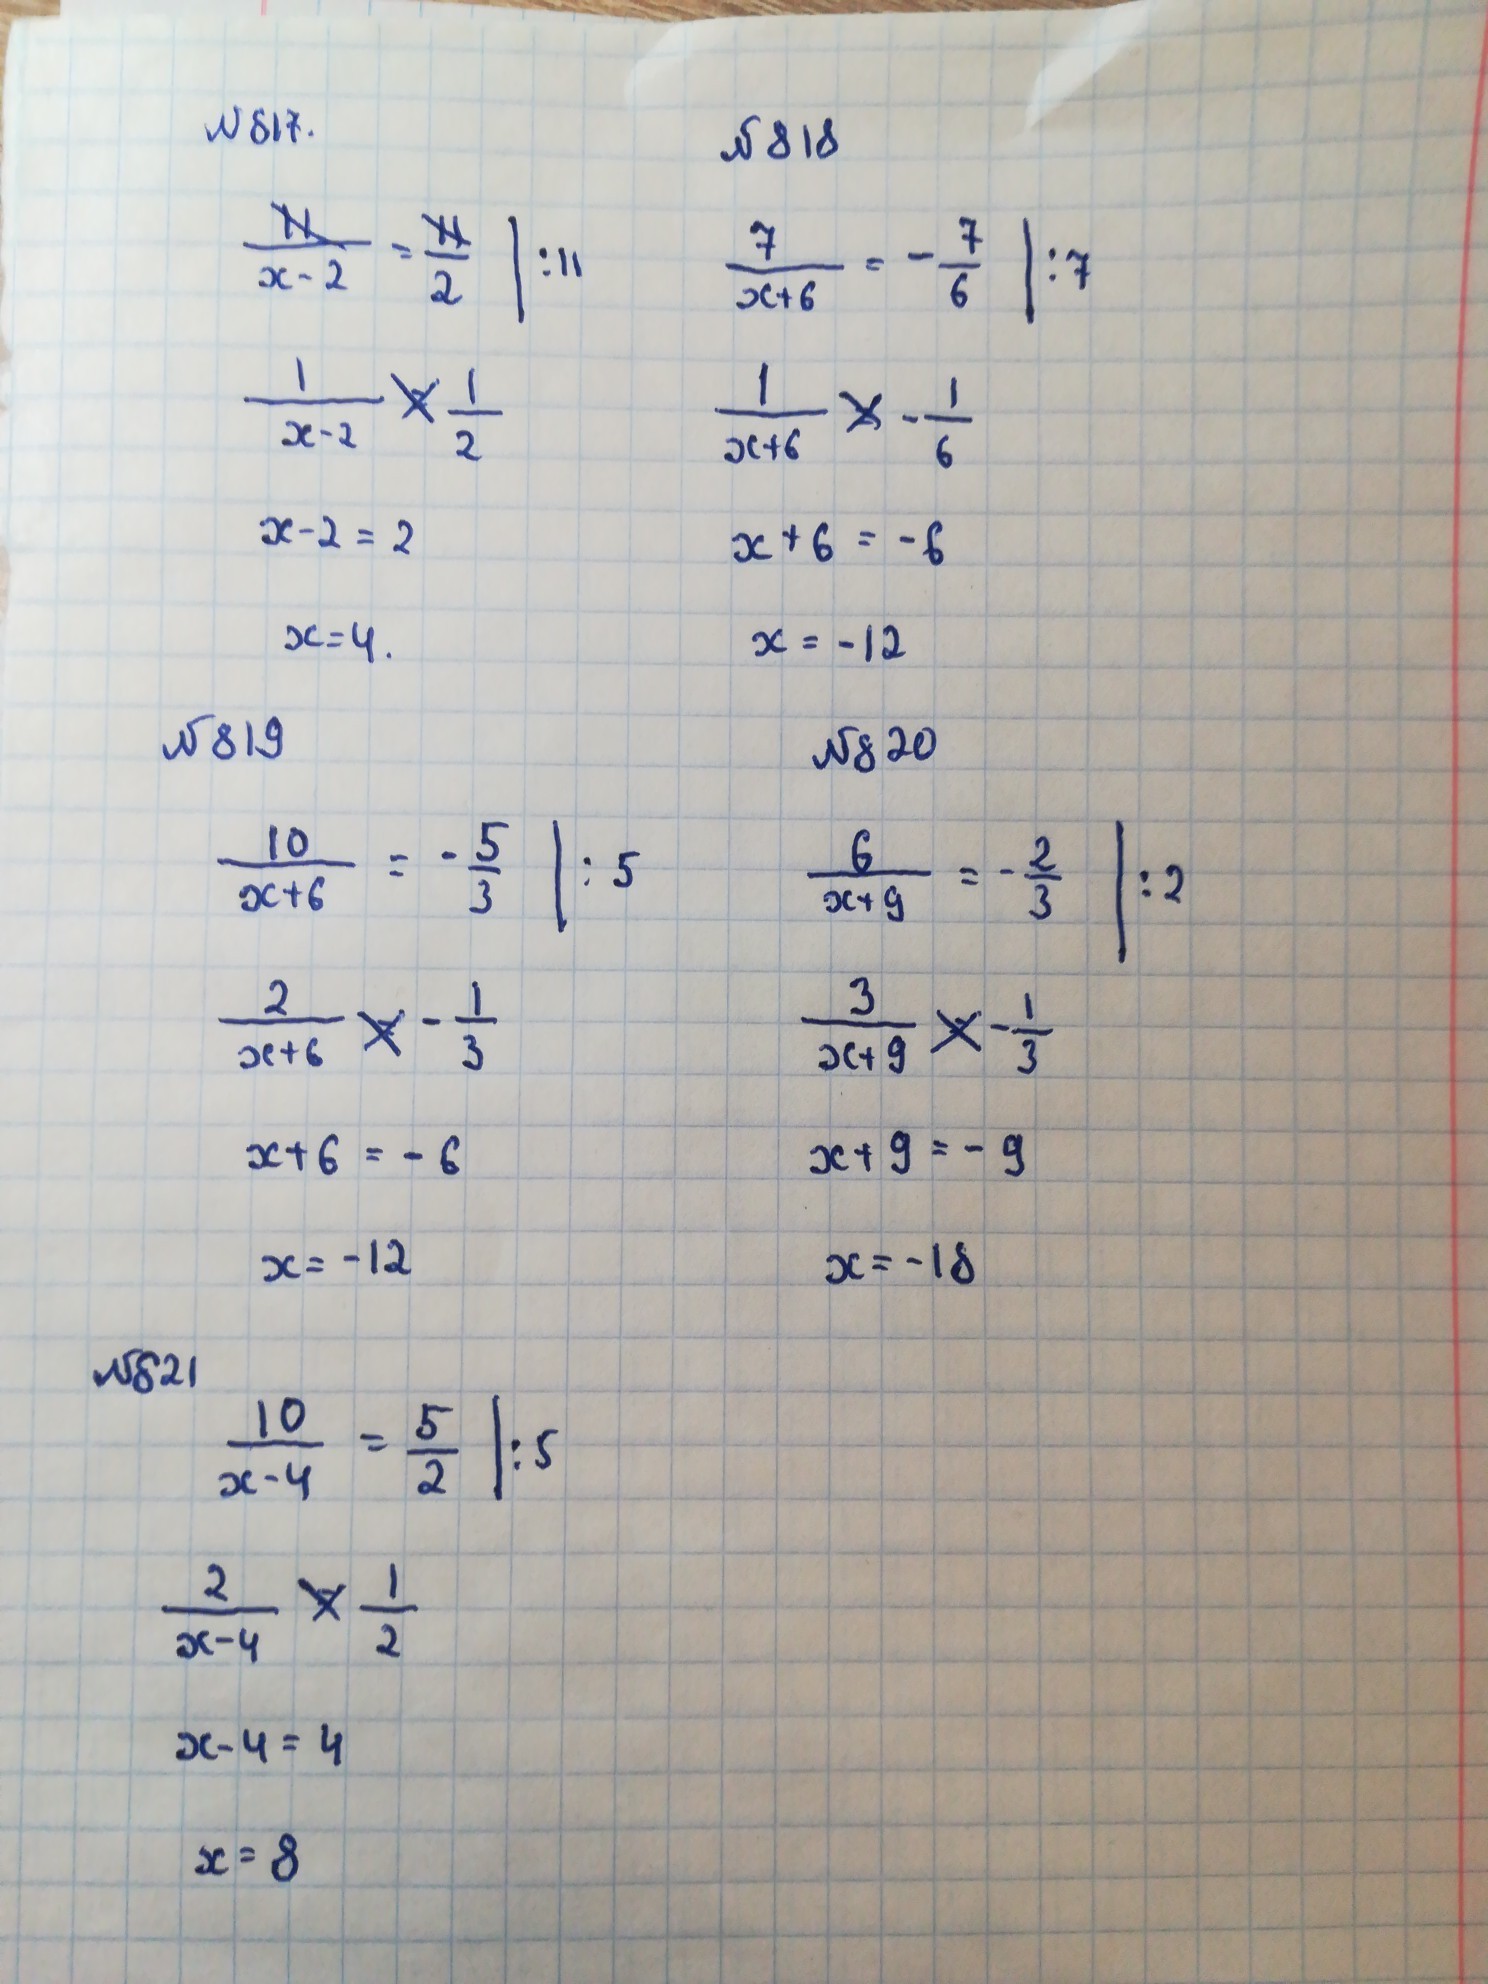 №817.
11/(x-2) = 11/2 | :11
1/(x-2) = 1/2
x-2=2
x=4.
№818
7/(x+6) = -7/6 | :7
1/(x+6) = -1/6
x+6=-6
x=-12
№819
10/(x+6) = -5/3 | :5
2/(x+6) = -1/3
x+6=-6
x=-12
№820
6/(x+9) = -2/3 | :2
3/(x+9) = -1/3
x+9=-9
x=-18
№821
10/(x-4) = 5/2 | :5
2/(x-4) = 1/2
x-4=4
x=8